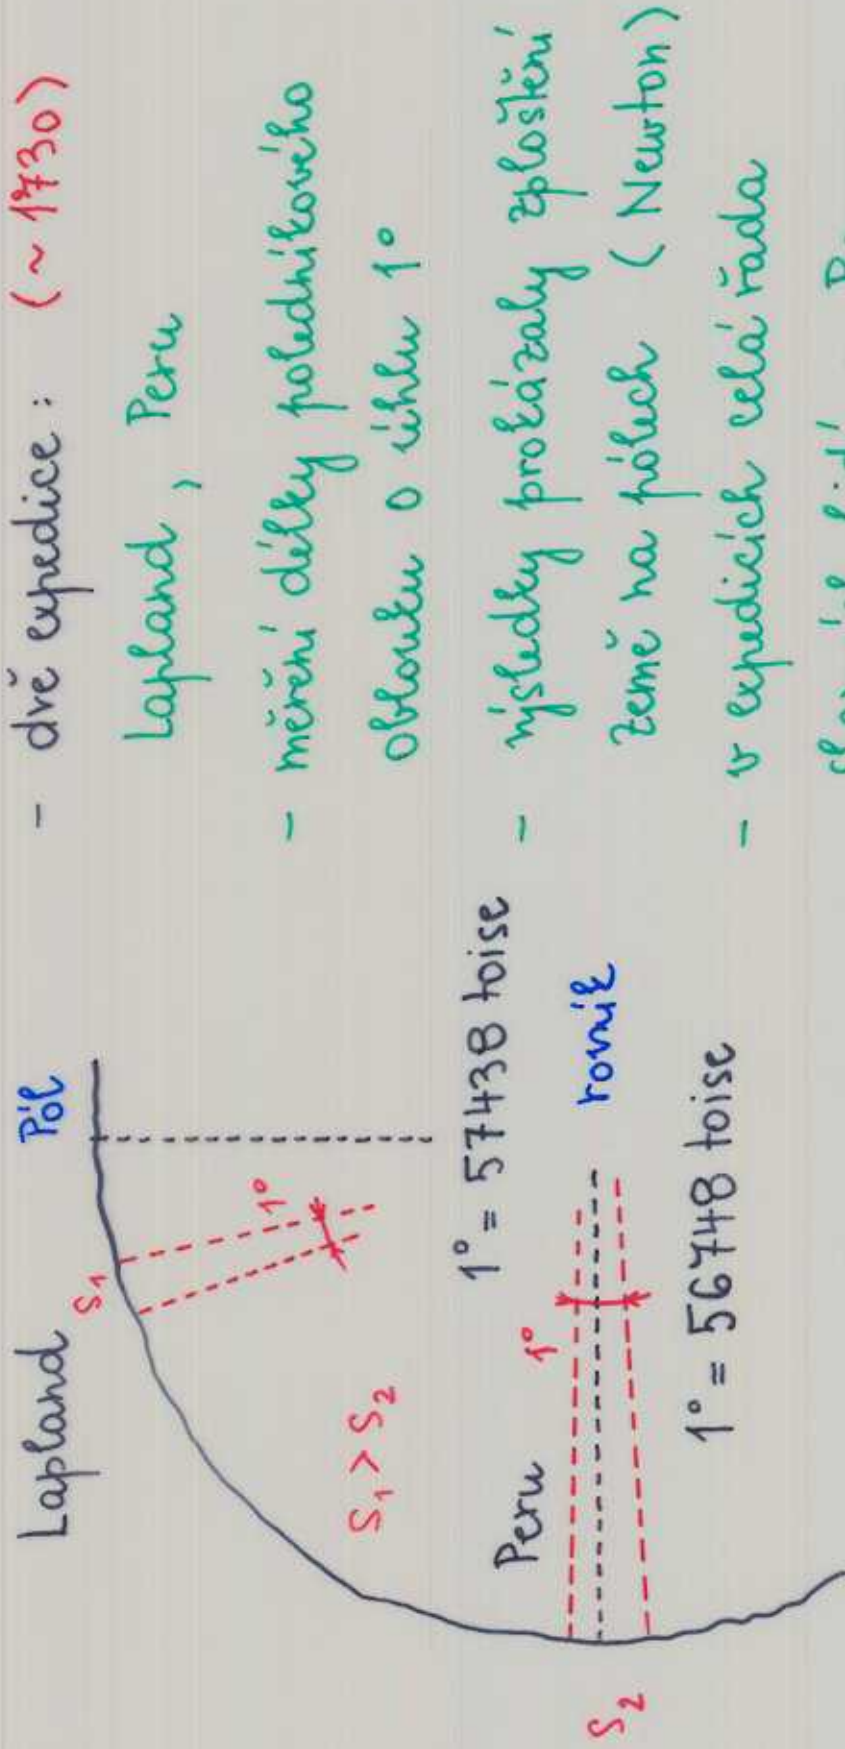 Lapland
Pól
S1
1°
S1 > S2
1° = 57438 toise
Peru
1°
rovník
S2
1° = 56748 toise
- dvě expedice: (~ 1730)
Lapland, Peru
- měření délky poledníkového
oblouku o úhlu 1°
- výsledky prokázaly zploštění
Země na pólech (Newton)
- v expedicích celá řada